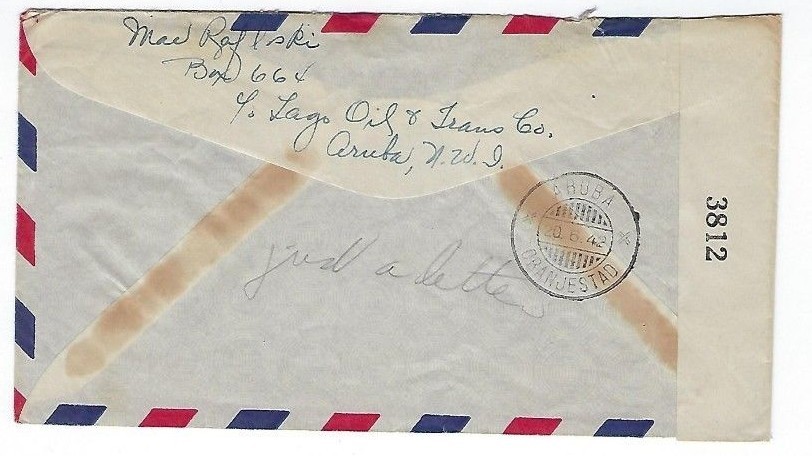 Mae Rafalski
Box 664
℅ Lago Oil & Trans Co.
Aruba, N.W.I.
ARUBA
20.6.42
ORANJESTAD
just a letter
3812